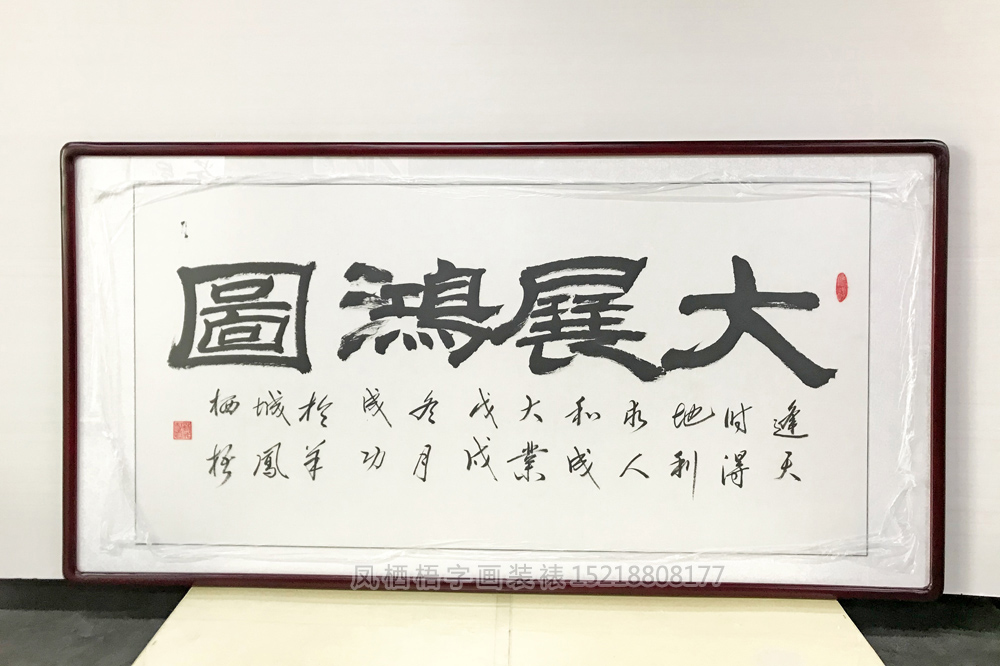 大展鴻圖
逢天
时得
地利
求人
和成
大業
戊戌
冬月
成功
於羊
城鳳
栖梧
凤栖梧字画装裱15218808177